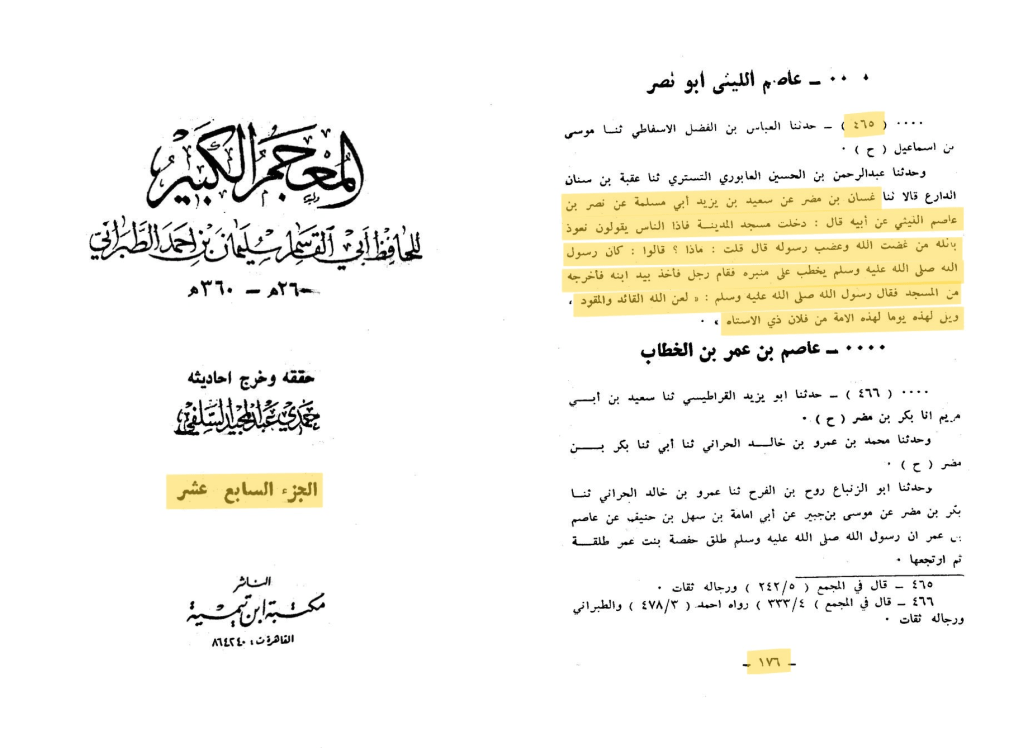 المعجم الكبير
للحافظ أبي القاسم سليمان بن احمد الطبراني
٢٦٠ھ – ٣٦٠ھ
حققه وخرج احاديثه
حمدي عبد المجيد السلفي
الجزء السابع عشر
الناشر
مكتبة ابن تيمية
القاهرة ت : ٨٦٤٢٤٠
٠٠٠ ــ عاصم الليثي ابو نصر
٠٠٠٠ ( ٤٦٥ ) ــ حدثنا العباس بن الفضل الاسفاطي ثنا موسى
بن اسماعيل ( ح ) ٠
وحدثنا عبدالرحمن بن الحسين العابوري التستري ثنا عقبة بن سنان
الدارع قالا ثنا غسان بن مضر عن سعيد بن يزيد أبي مسلمة عن نصر بن
عاصم الليثي عن أبيه قال : دخلت مسجد المدينة فاذا الناس يقولون نعوذ
بالله من غضب الله وغضب رسوله قال قلت : ماذا ؟ قالوا : كان رسول
الله صلى الله عليه وسلم يخطب على منبره فقام رجل فأخذ بيد ابنه فأخرجه
من المسجد فقال رسول الله صلى الله عليه وسلم : « لعن الله القائد والمقود ،
ويل لهذه يوما لهذه الامة من فلان ذي الاستاه » ٠
٠٠٠٠ ــ عاصم بن عمر بن الخطاب
٠٠٠٠ ( ٤٦٦ ) ــ حدثنا ابو يزيد القراطيسي ثنا سعيد بن أبي
مريم انا بكر بن مضر ( ح ) ٠
وحدثنا محمد بن عمرو بن خالد الحراني ثنا أبي ثنا بكر بن
مضر ( ح ) ٠
وحدثنا ابو الزنباع روح بن الفرج ثنا عمرو بن خالد الحراني ثنا
بكر بن مضر عن موسى بن جبير عن أبي امامة بن سهل بن حنيف عن عاصم
بن عمر ان رسول الله صلى الله عليه وسلم طلق حفصة بنت عمر طلقة
ثم ارتجعها ٠
٤٦٥ ــ قال في المجمع ( ٢٤٢/٥ ) ورجاله ثقات ٠
٤٦٦ ــ قال في المجمع ) ٣٣٣/٤ ) رواه احمد ( ٤٧٨/٣ ) والطبراني
ورجاله ثقات ٠
ــ ١٧٦ ــ